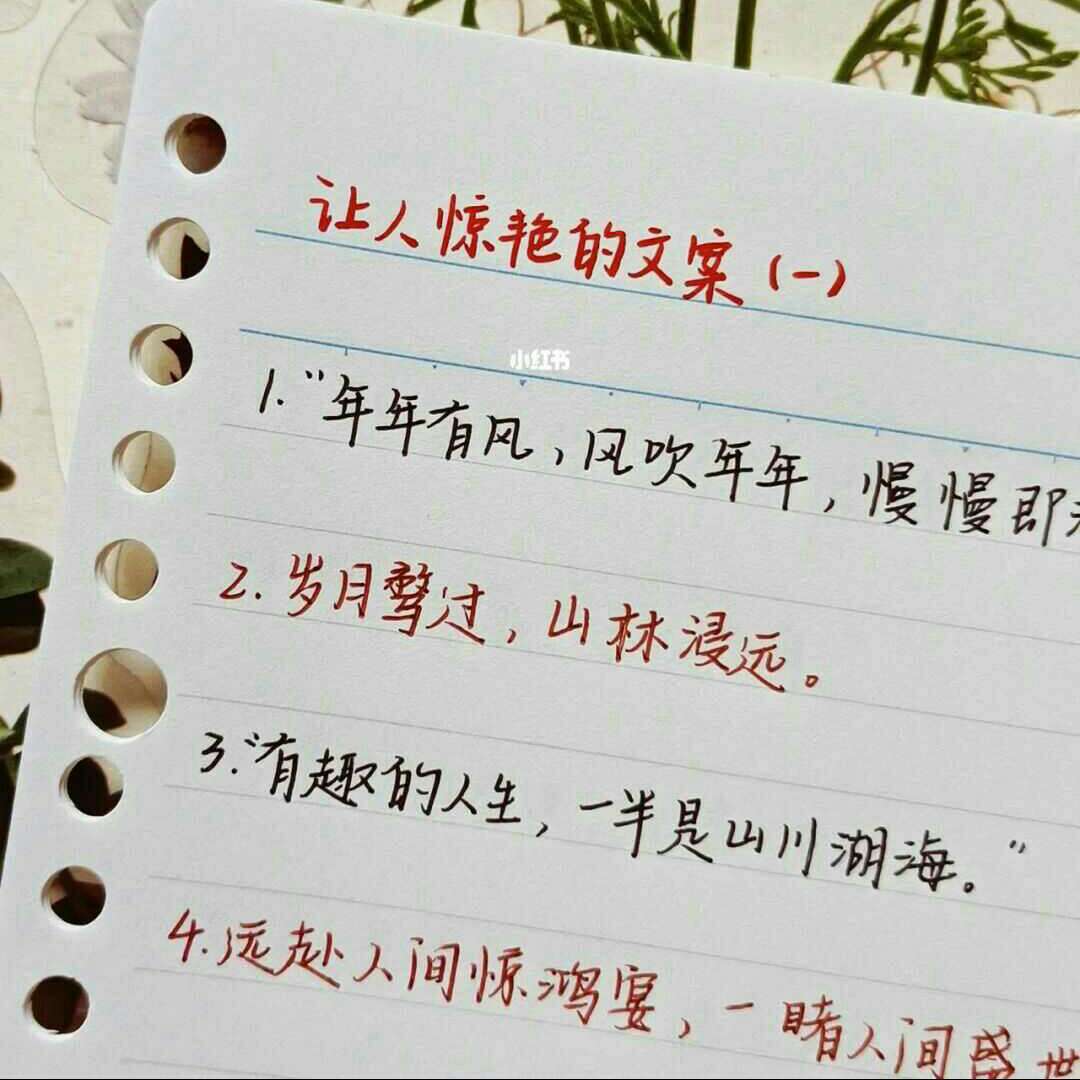 让人惊艳的文案(一)
小红书
1.“年年有风,风吹年年,慢慢即
2.岁月骛过,山林浸远。
3.“有趣的人生,一半是山川湖海。”
4.远赴人间惊鸿宴,一睹人间盛世